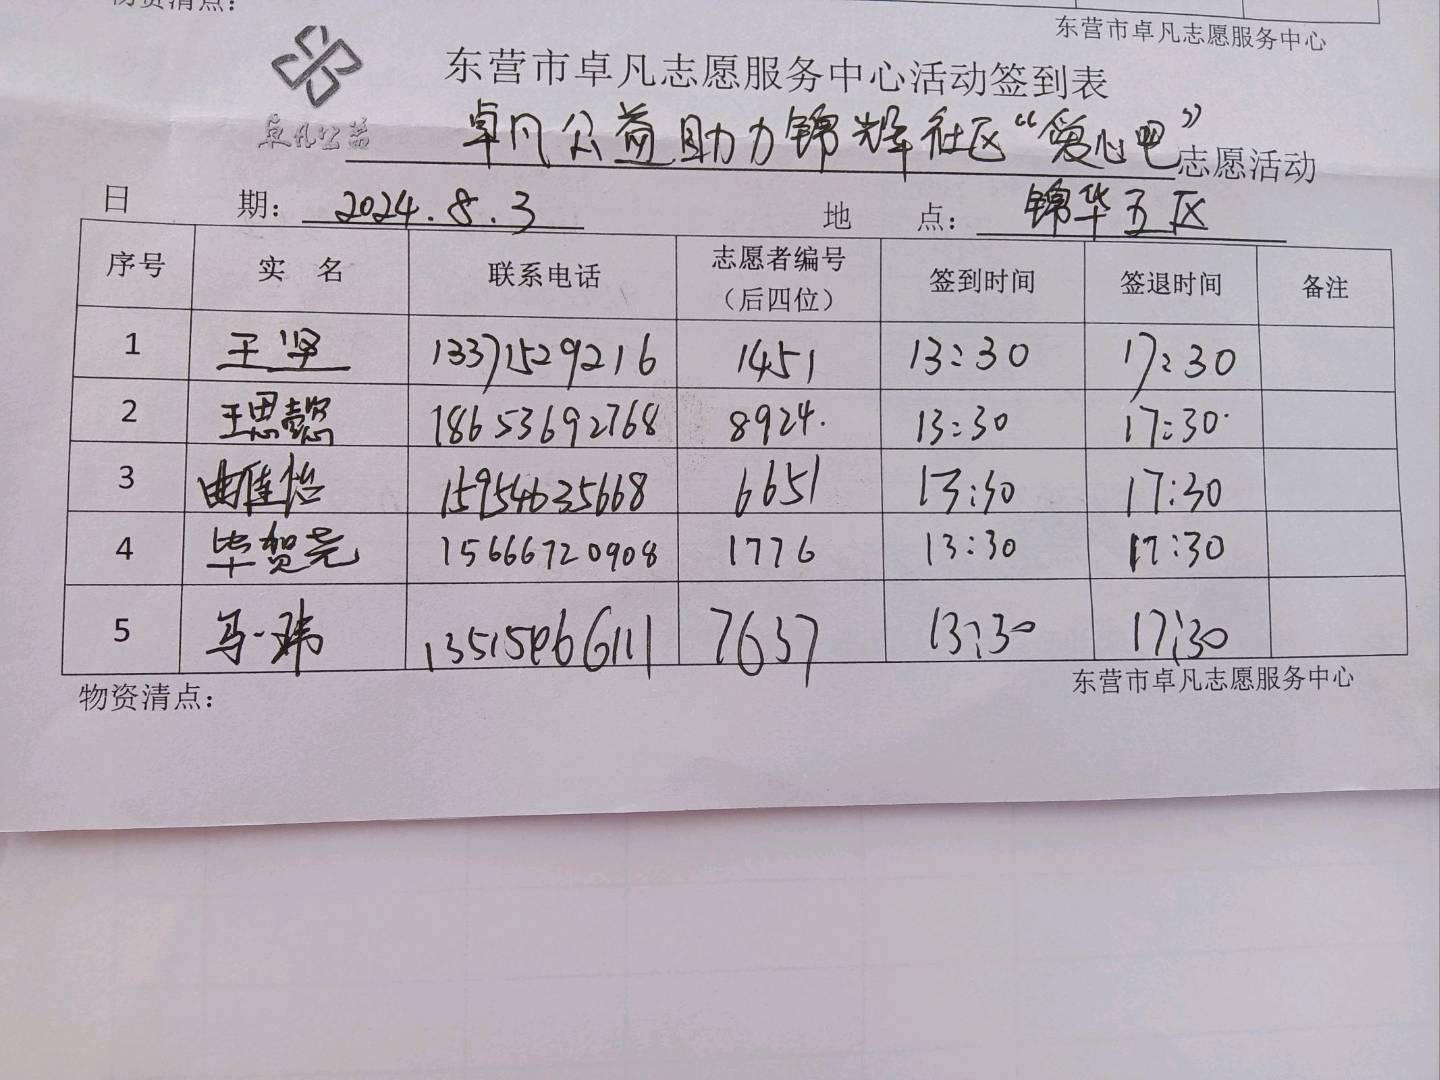 物资清点：
东营市卓凡志愿服务中心
东营市卓凡志愿服务中心活动签到表
卓凡公益
卓凡公益助力锦辉社区“爱心吧”志愿活动
日 期： 2024.8.3 地 点： 锦华五区
序号 实 名 联系电话 志愿者编号（后四位） 签到时间 签退时间 备注
1 王坚 13371529216 1451 13:30 17:30
2 王思懿 18653692768 8924. 13:30 17:30.
3 曲佳怡 15954635668 6651 13:30 17:30
4 毕贺尧 15666720908 1776 13:30 17:30
5 马玮 7637 13:30 17:30
物资清点：
东营市卓凡志愿服务中心